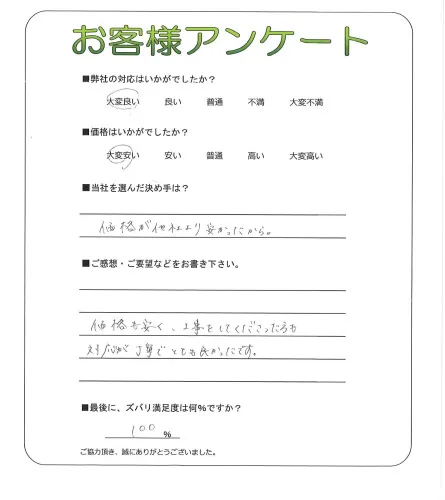 お客様アンケート
■弊社の対応はいかがでしたか？
大変良い 良い 普通 不満 大変不満
■価格はいかがでしたか？
大変安い 安い 普通 高い 大変高い
■当社を選んだ決め手は？
価格が他社より安かったから。
■ご感想・ご要望などをお書き下さい。
価格も安く、工事をしてくださった方も
対応が丁寧でとても良かったです。
■最後に、ズバリ満足度は何％ですか？
100 %
ご協力頂き、誠にありがとうございました。